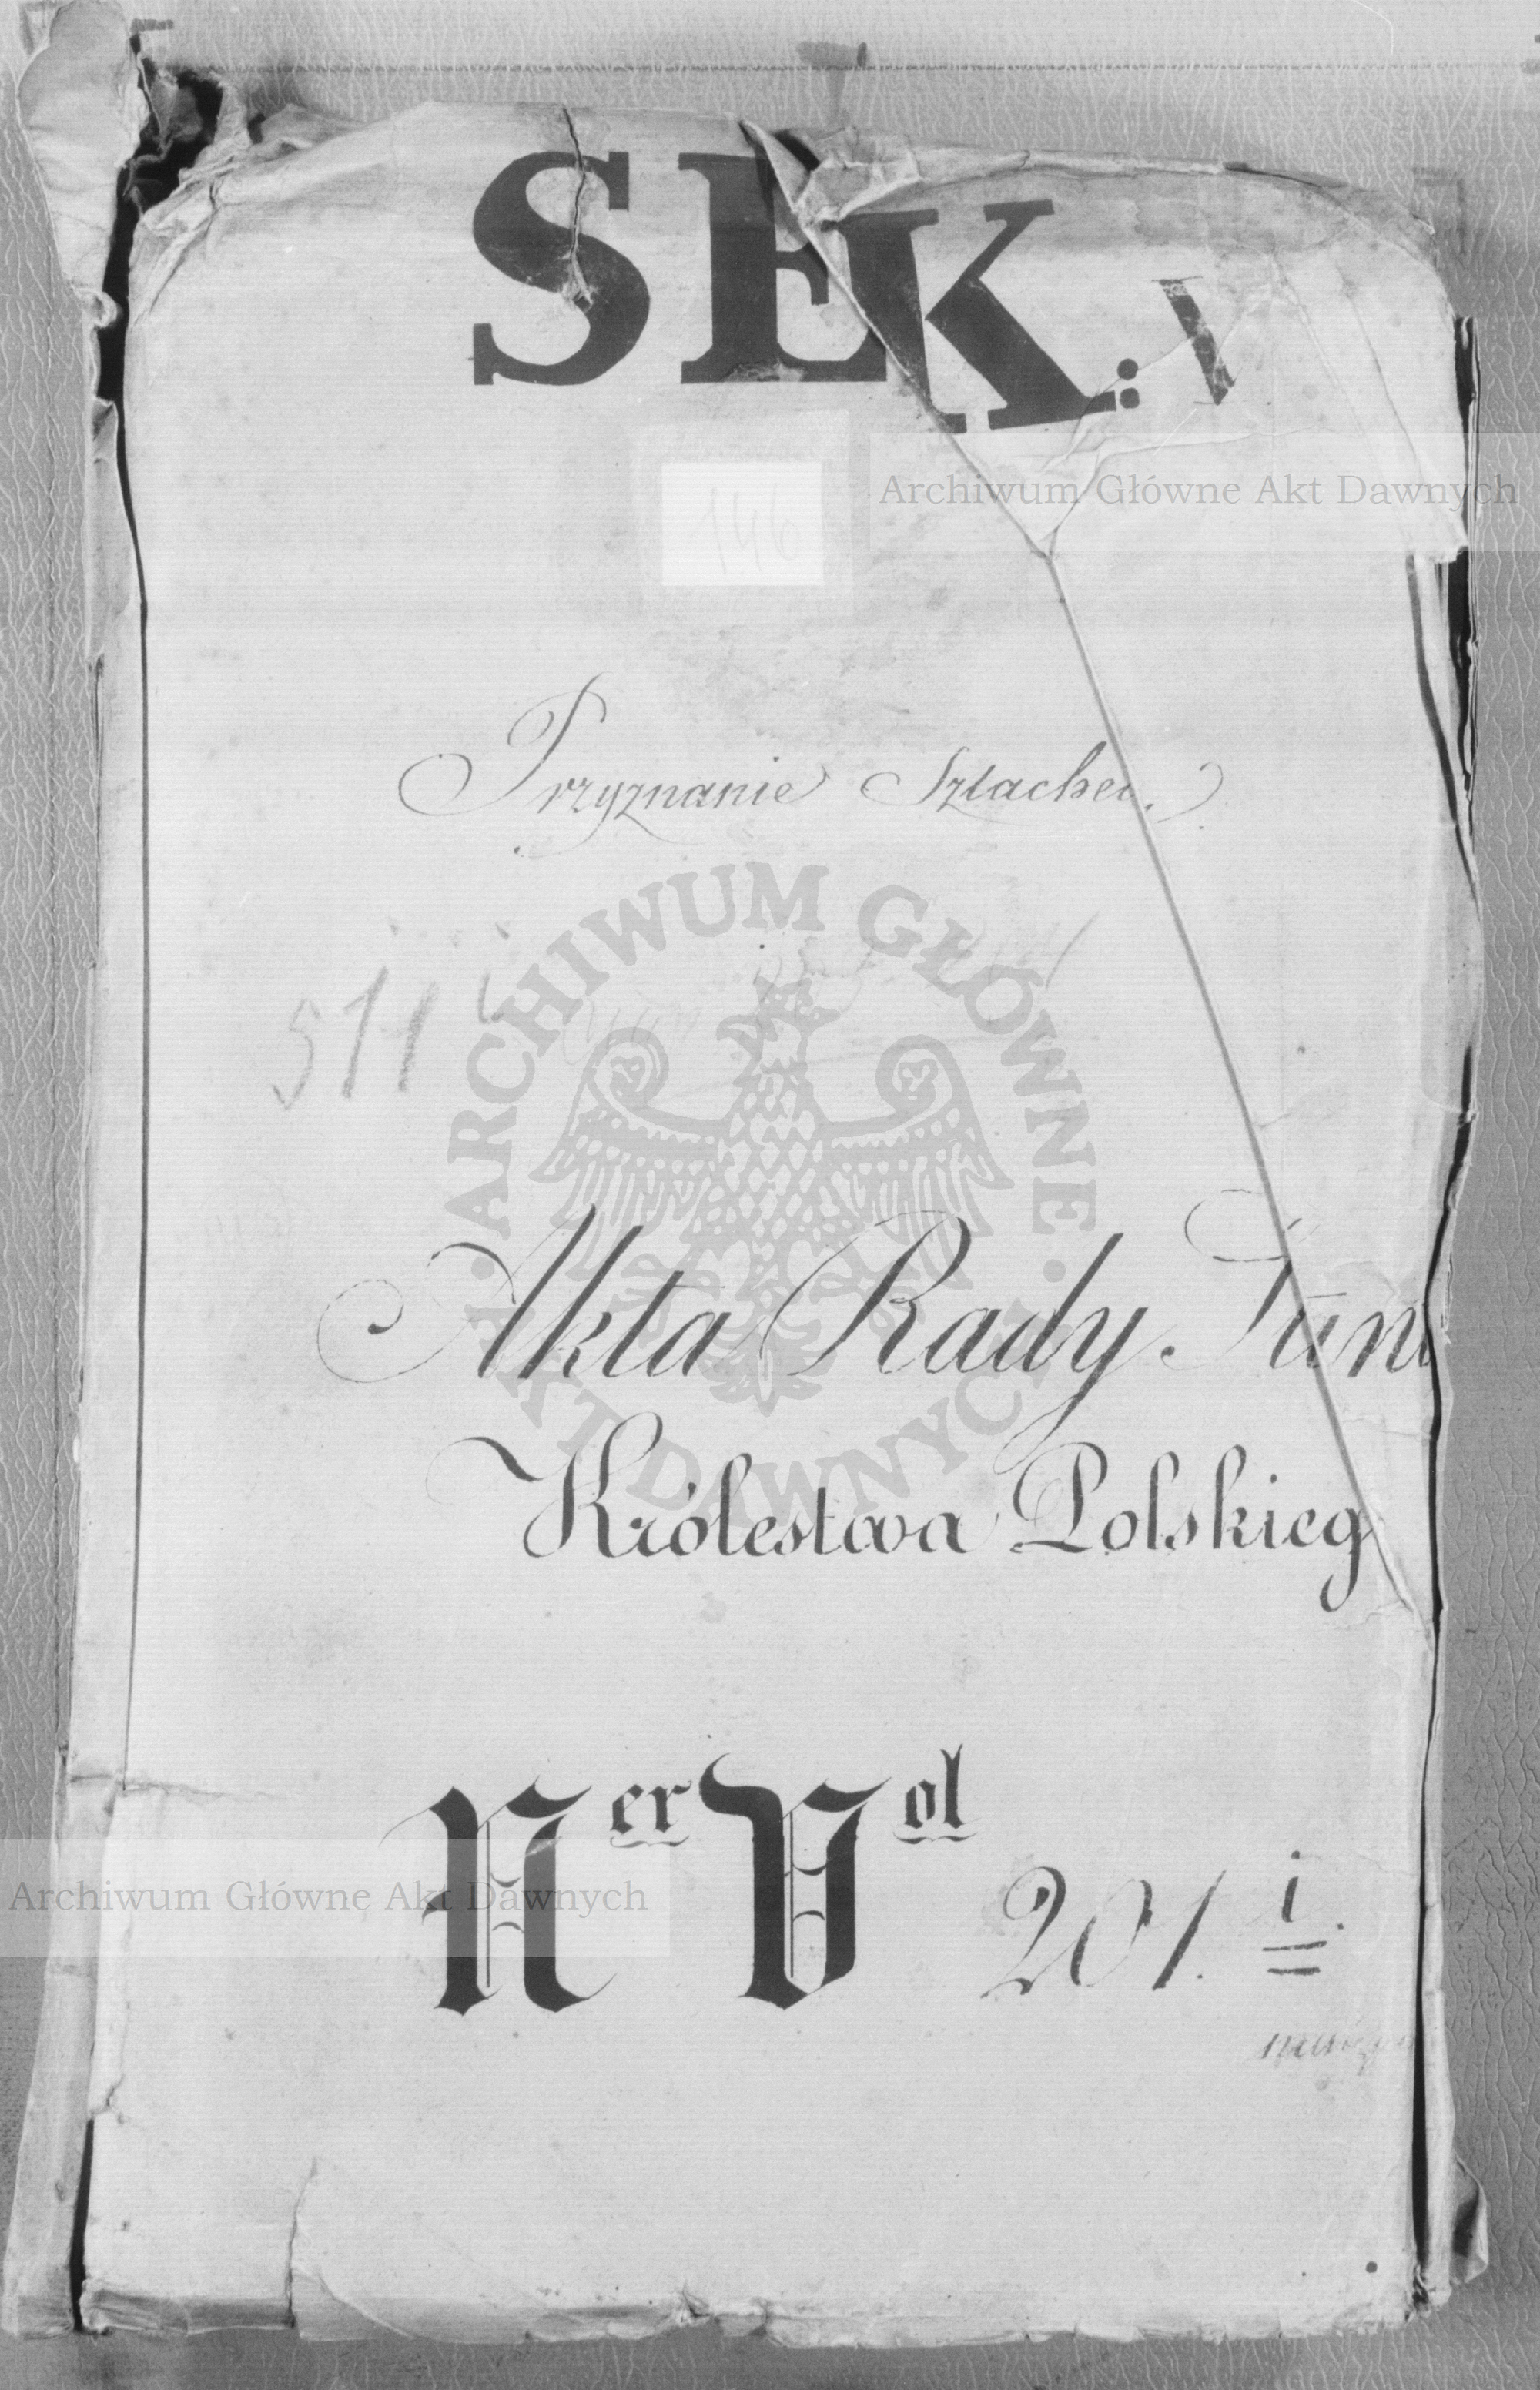 SEK: V
Archiwum Główne Akt Dawnych
146
Przyznanie Szlachec.
ARCHIWUM GŁÓWNE
511
Akta Rady Stanu
AKT DAWNYCH
Królestwa Polskieg
Ner Vol 201. i
Archiwum Główne Akt Dawnych